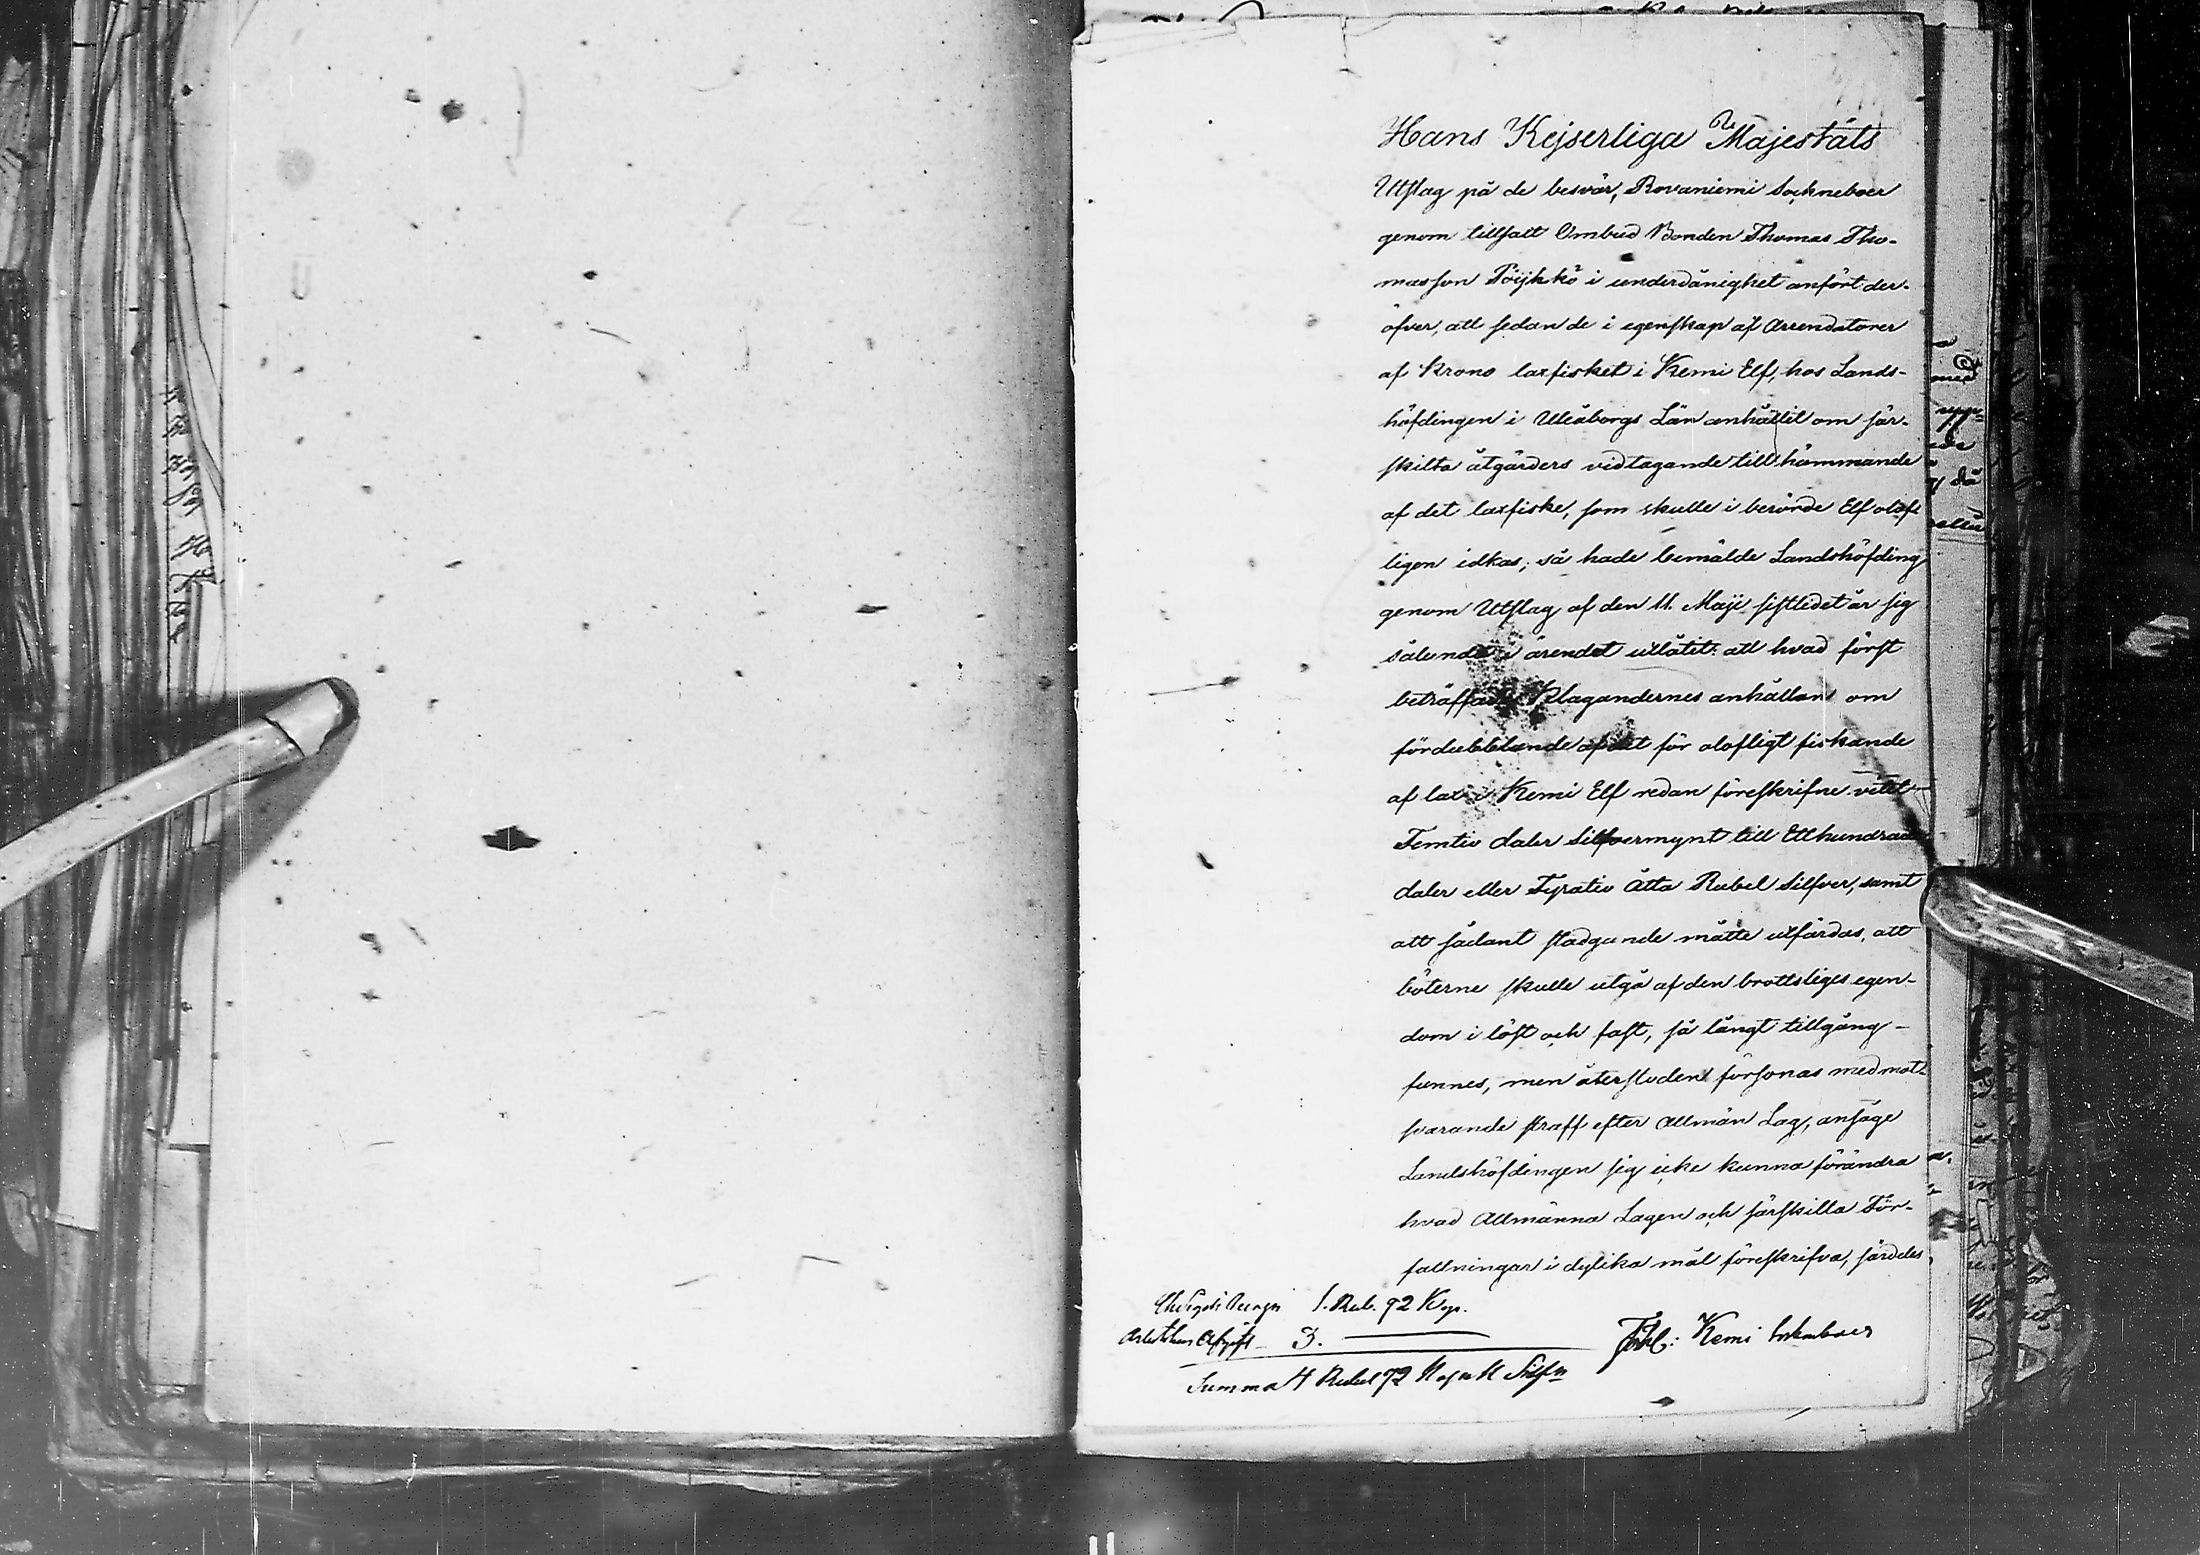 Hans Kejserliga Majestäts
Utslag på de besvär, Rovaniemi Sockneboer
genom tillsatt Ombud Bonden Thomas Tho-
masson Pöijkkö i underdånighet anfört der-
öfver, att sedan de i egenskap af Arrendatorer
af Krono laxfisket i Kemi Elf, hos Lands-
höfdingen i Uleåborgs Län anhållit om sär-
skilta åtgärders vidtagande till hämmande
af det laxfiske, som skulle i berörde Elf olaf-
ligen idkas, så hade bemälde Landshöfding
genom Utslag af den 11. Maji sistledet år sig
sålunda i ärendet utlåtit: att hvad först
beträffade Klagandernes anhållan om
fördubblande af det för olofligt fiskande
af lax i Kemi Elf redan föreskrifne vitet
Femtio daler Silfvermynt till Etthundrade
daler eller Fyratio åtta Rubel Silfver, samt
att sådant stadgande måtte utfärdas, att
böterne skulle utgå af den brottsliges egen-
dom i löst och fast, så långt tillgång
funnes, men återstoden försonas med mot-
svarande straff efter Allmän Lag, ansåge
Landshöfdingen sig icke kunna förändra
hvad Allmänna Lagen och särskilta För-
fattningar i dylika mål föreskrifva, särdeles
1. Rub. 72 Kop.
Afgift 3.
Summa 4 Rubel 72 Kopek Silfr
Kemi Sockneboer